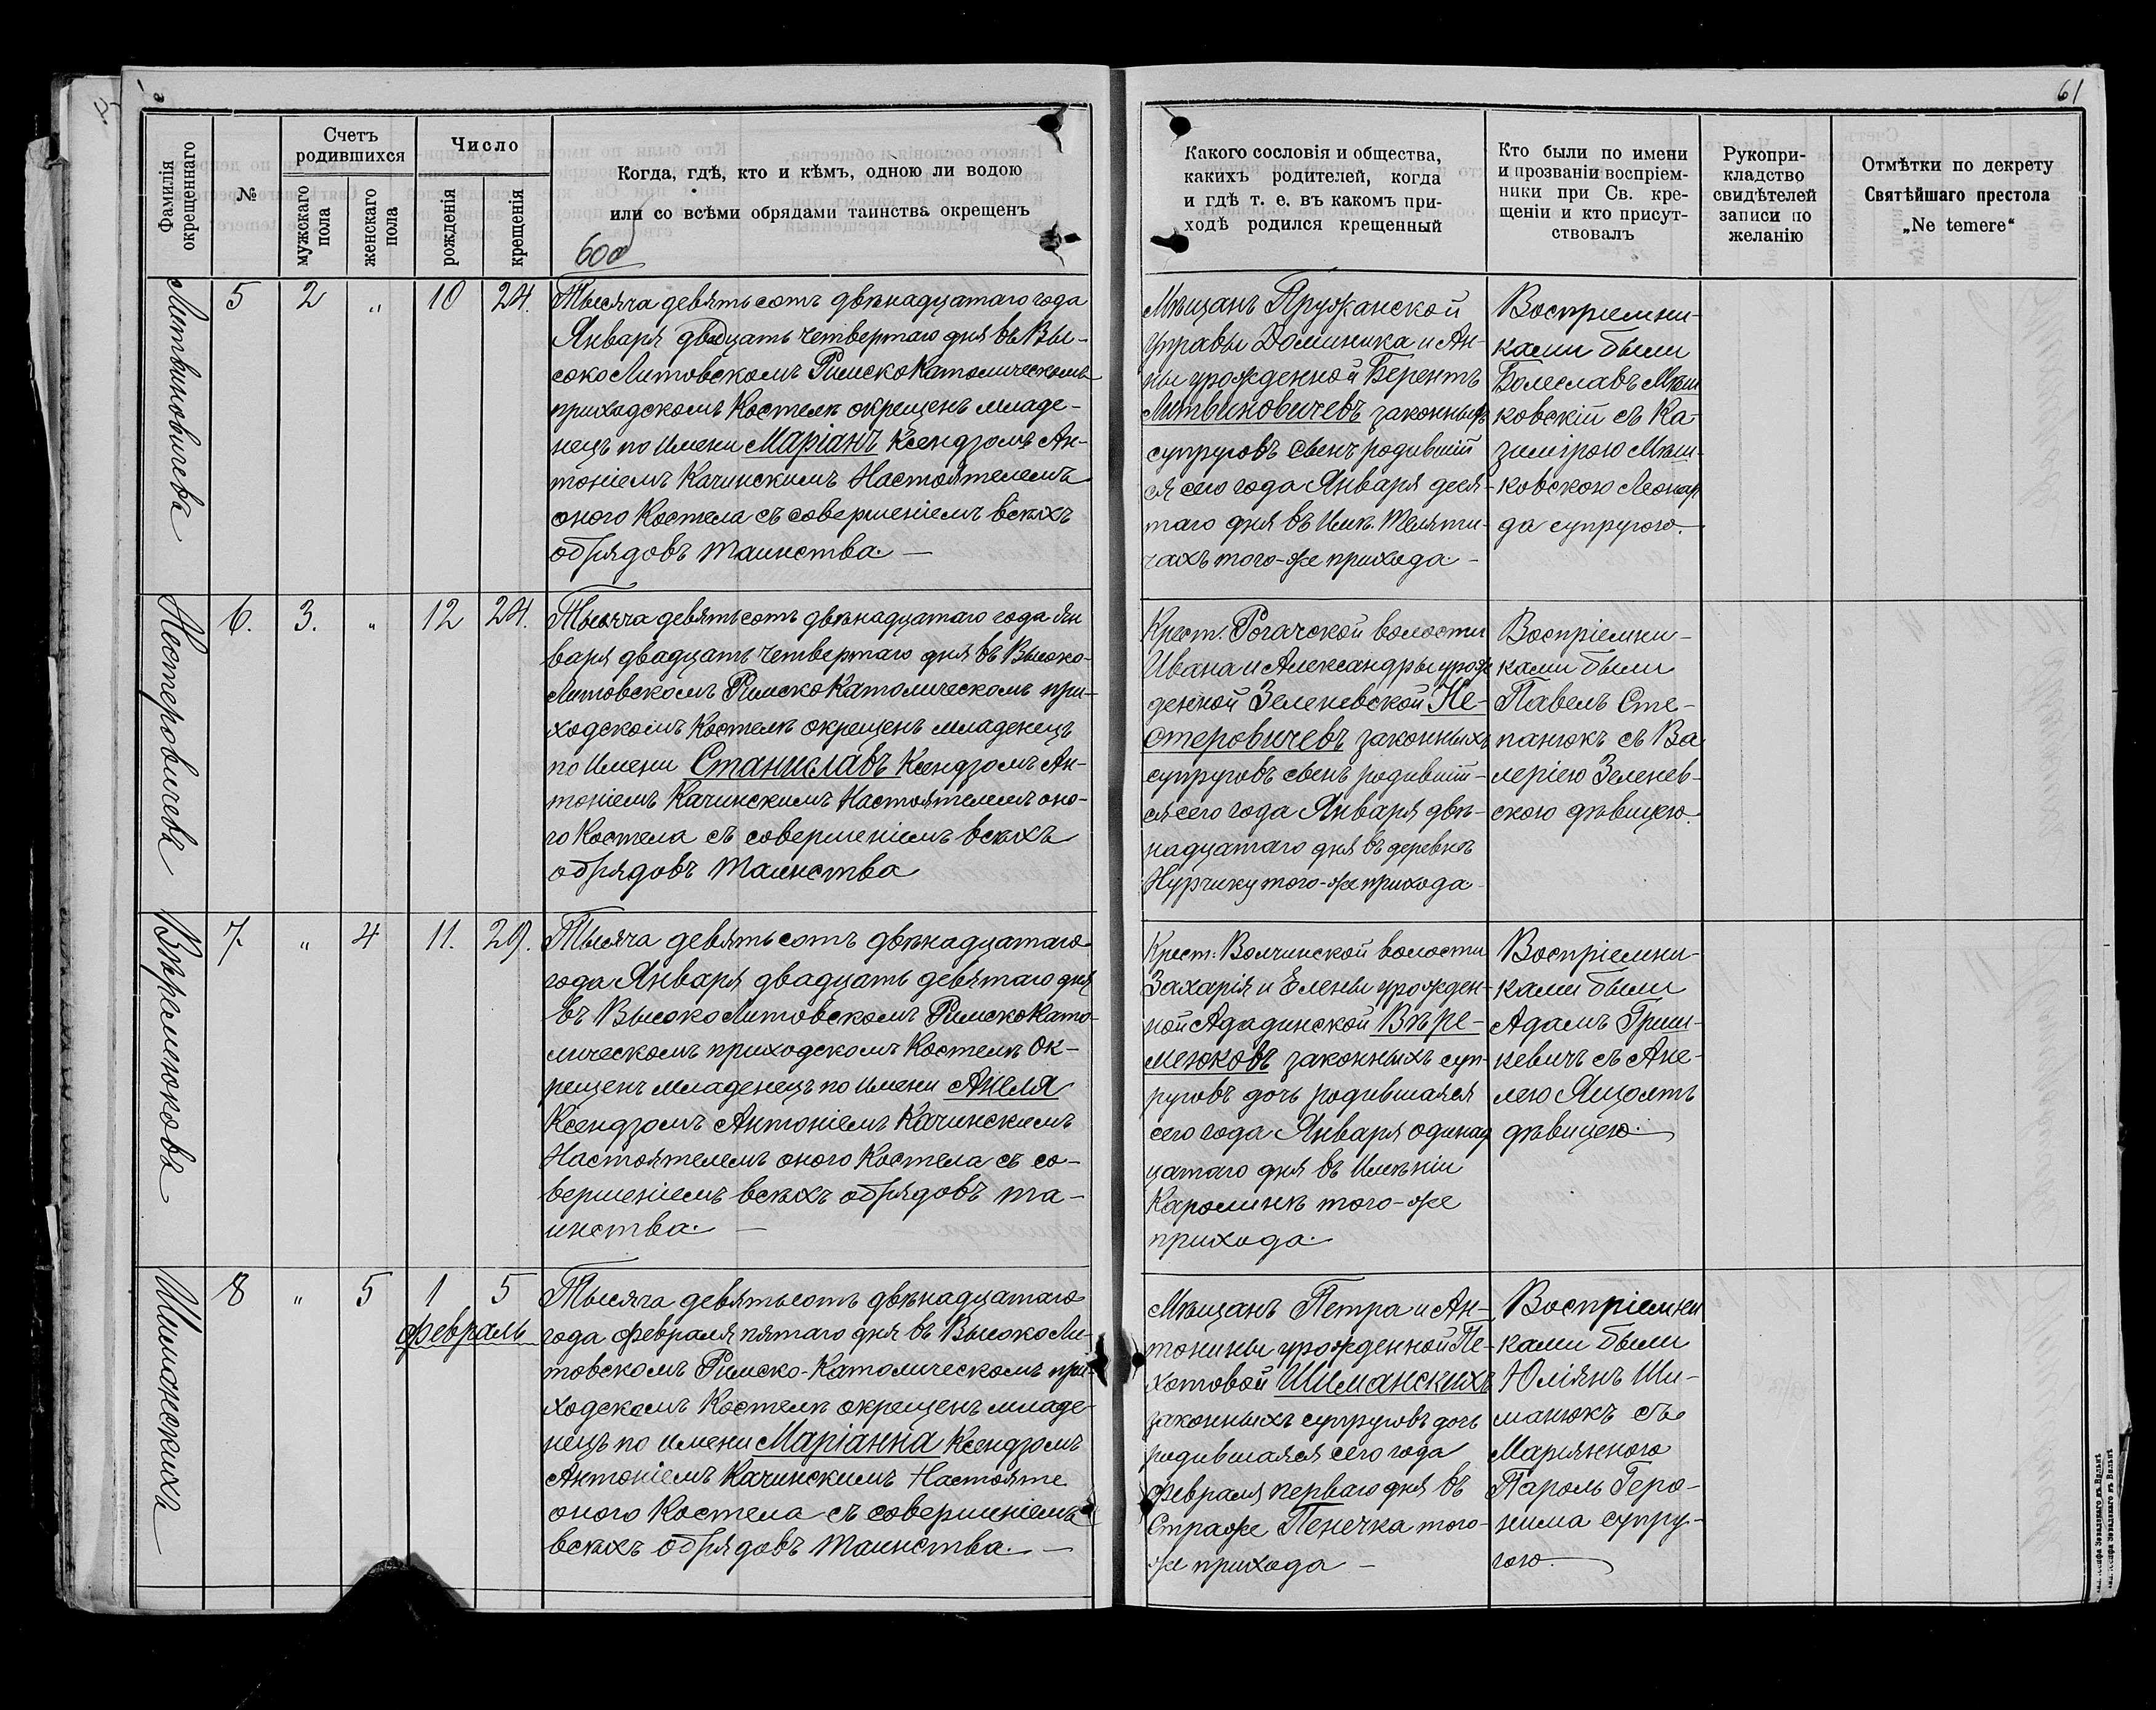 61
Фамилія
окрещеннаго
№
Счетъ
родившихся
мужскаго
пола
женскаго
пола
Число
рожденія
крещенія
Когда, гдѣ, кто и кѣмъ, одною ли водою
или со всѣми обрядами таинства окрещенъ
Какого сословія и общества,
какихъ родителей, когда
и гдѣ т. е. въ какомъ при-
ходѣ родился крещенный
Кто были по имени
и прозваніи воспріем-
ники при Св. кре-
щеніи и кто присут-
ствовалъ
Рукопри-
кладство
свидѣтелей
записи по
желанію
Отмѣтки по декрету
Святѣйшаго престола
„Ne temere“
Литвиновичева
5 2 „ 10 24.
Тысяча девятьсотъ двѣнадцатаго года
Января двадцать четвертаго дня въ Вы-
соко Литовскомъ Римско Католическомъ
приходскомъ Костелѣ окрещенъ младе-
нецъ по имени Маріанъ Ксендзомъ Ан-
тоніемъ Качинскимъ Настоятелемъ
оного Костела съ совершеніемъ всѣхъ
обрядовъ таинства. —
Мѣщанъ Пружанской
Управы Доминика и Ан-
ны урожденной Берентъ
Литвиновичевъ законныхъ
супруговъ сынъ родившій
ся сего года Января деся-
таго дня въ Имѣ. Теляти-
чахъ того-же прихода -
Воспріемни-
ками были
Болеславъ Мыш
ковскій съ Ка-
зимірою Мыш-
ковскою Леонар
да супругою.
Нестеровичева
6. 3. „ 12 24.
Тысяча девятьсотъ двѣнадцатаго года Ян
варя двадцать четвертаго дня въ Высоко-
Литовскомъ Римско Католическомъ при-
ходскомъ Костелѣ окрещенъ младенецъ
по имени Станиславъ Ксендзомъ Ан-
тоніемъ Качинскимъ Настоятелемъ оно-
го Костела съ совершеніемъ всѣхъ
обрядовъ таинства
Крест. Рогачской волости
Ивана и Александры урож
денной Зеленевской Не-
стеровичевъ законныхъ
супруговъ сынъ родившій-
ся сего года Января двѣ-
надцатаго дня въ деревнѣ
Нурчику того-же прихода
Воспріемни-
ками были
Павелъ Сте-
панюкъ съ Ва
леріею Зеленев-
скою дѣвицею.
Вѣремеюкова
7. „ 4 11. 29.
Тысяча девятьсотъ двѣнадцатаго
года Января двадцать девятаго дня
въ Высоко Литовскомъ Римско Като-
лическомъ приходскомъ Костелѣ ок-
рещенъ младенецъ по имени Анеля
Ксендзомъ Антоніемъ Качинскимъ
Настоятелемъ оного Костела съ со-
вершеніемъ всѣхъ обрядовъ та-
инства. —
Крест. Волчинской волости
Захарія и Елены урожден-
ной Ададинской Вѣре-
меюковъ законныхъ суп-
руговъ дочь родившаяся
сего года Января одинад
цатаго дня въ Имѣніи
Каролинѣ того-же
прихода.
Воспріемни-
ками были
Адамъ Гриш-
кевичъ съ Ане-
лею Яцолтъ
дѣвицею.
Шиманскихъ
8 „ 5 1 5
Февраль
Тысяча девятьсотъ двѣнадцатаго
года Февраля пятаго дня въ Высоко Ли-
товскомъ Римско-Католическомъ при-
ходскомъ Костелѣ окрещенъ младе-
нецъ по имени Маріанна Ксендзомъ
Антоніемъ Качинскимъ Настояте
оного Костела съ совершеніемъ
всѣхъ обрядовъ таинства. —
Мѣщанъ Петра и Ан-
тонины урожденной Пе-
хотовой Шиманскихъ
законныхъ супруговъ дочь
родившаяся сего года
Февраля перваго дня въ
Страже Пенечка того-
же прихода —
Воспріемни
ками были
Юліянъ Ши-
манюкъ съ
Маріянною
Пароль Геро-
нима супру-
гою.